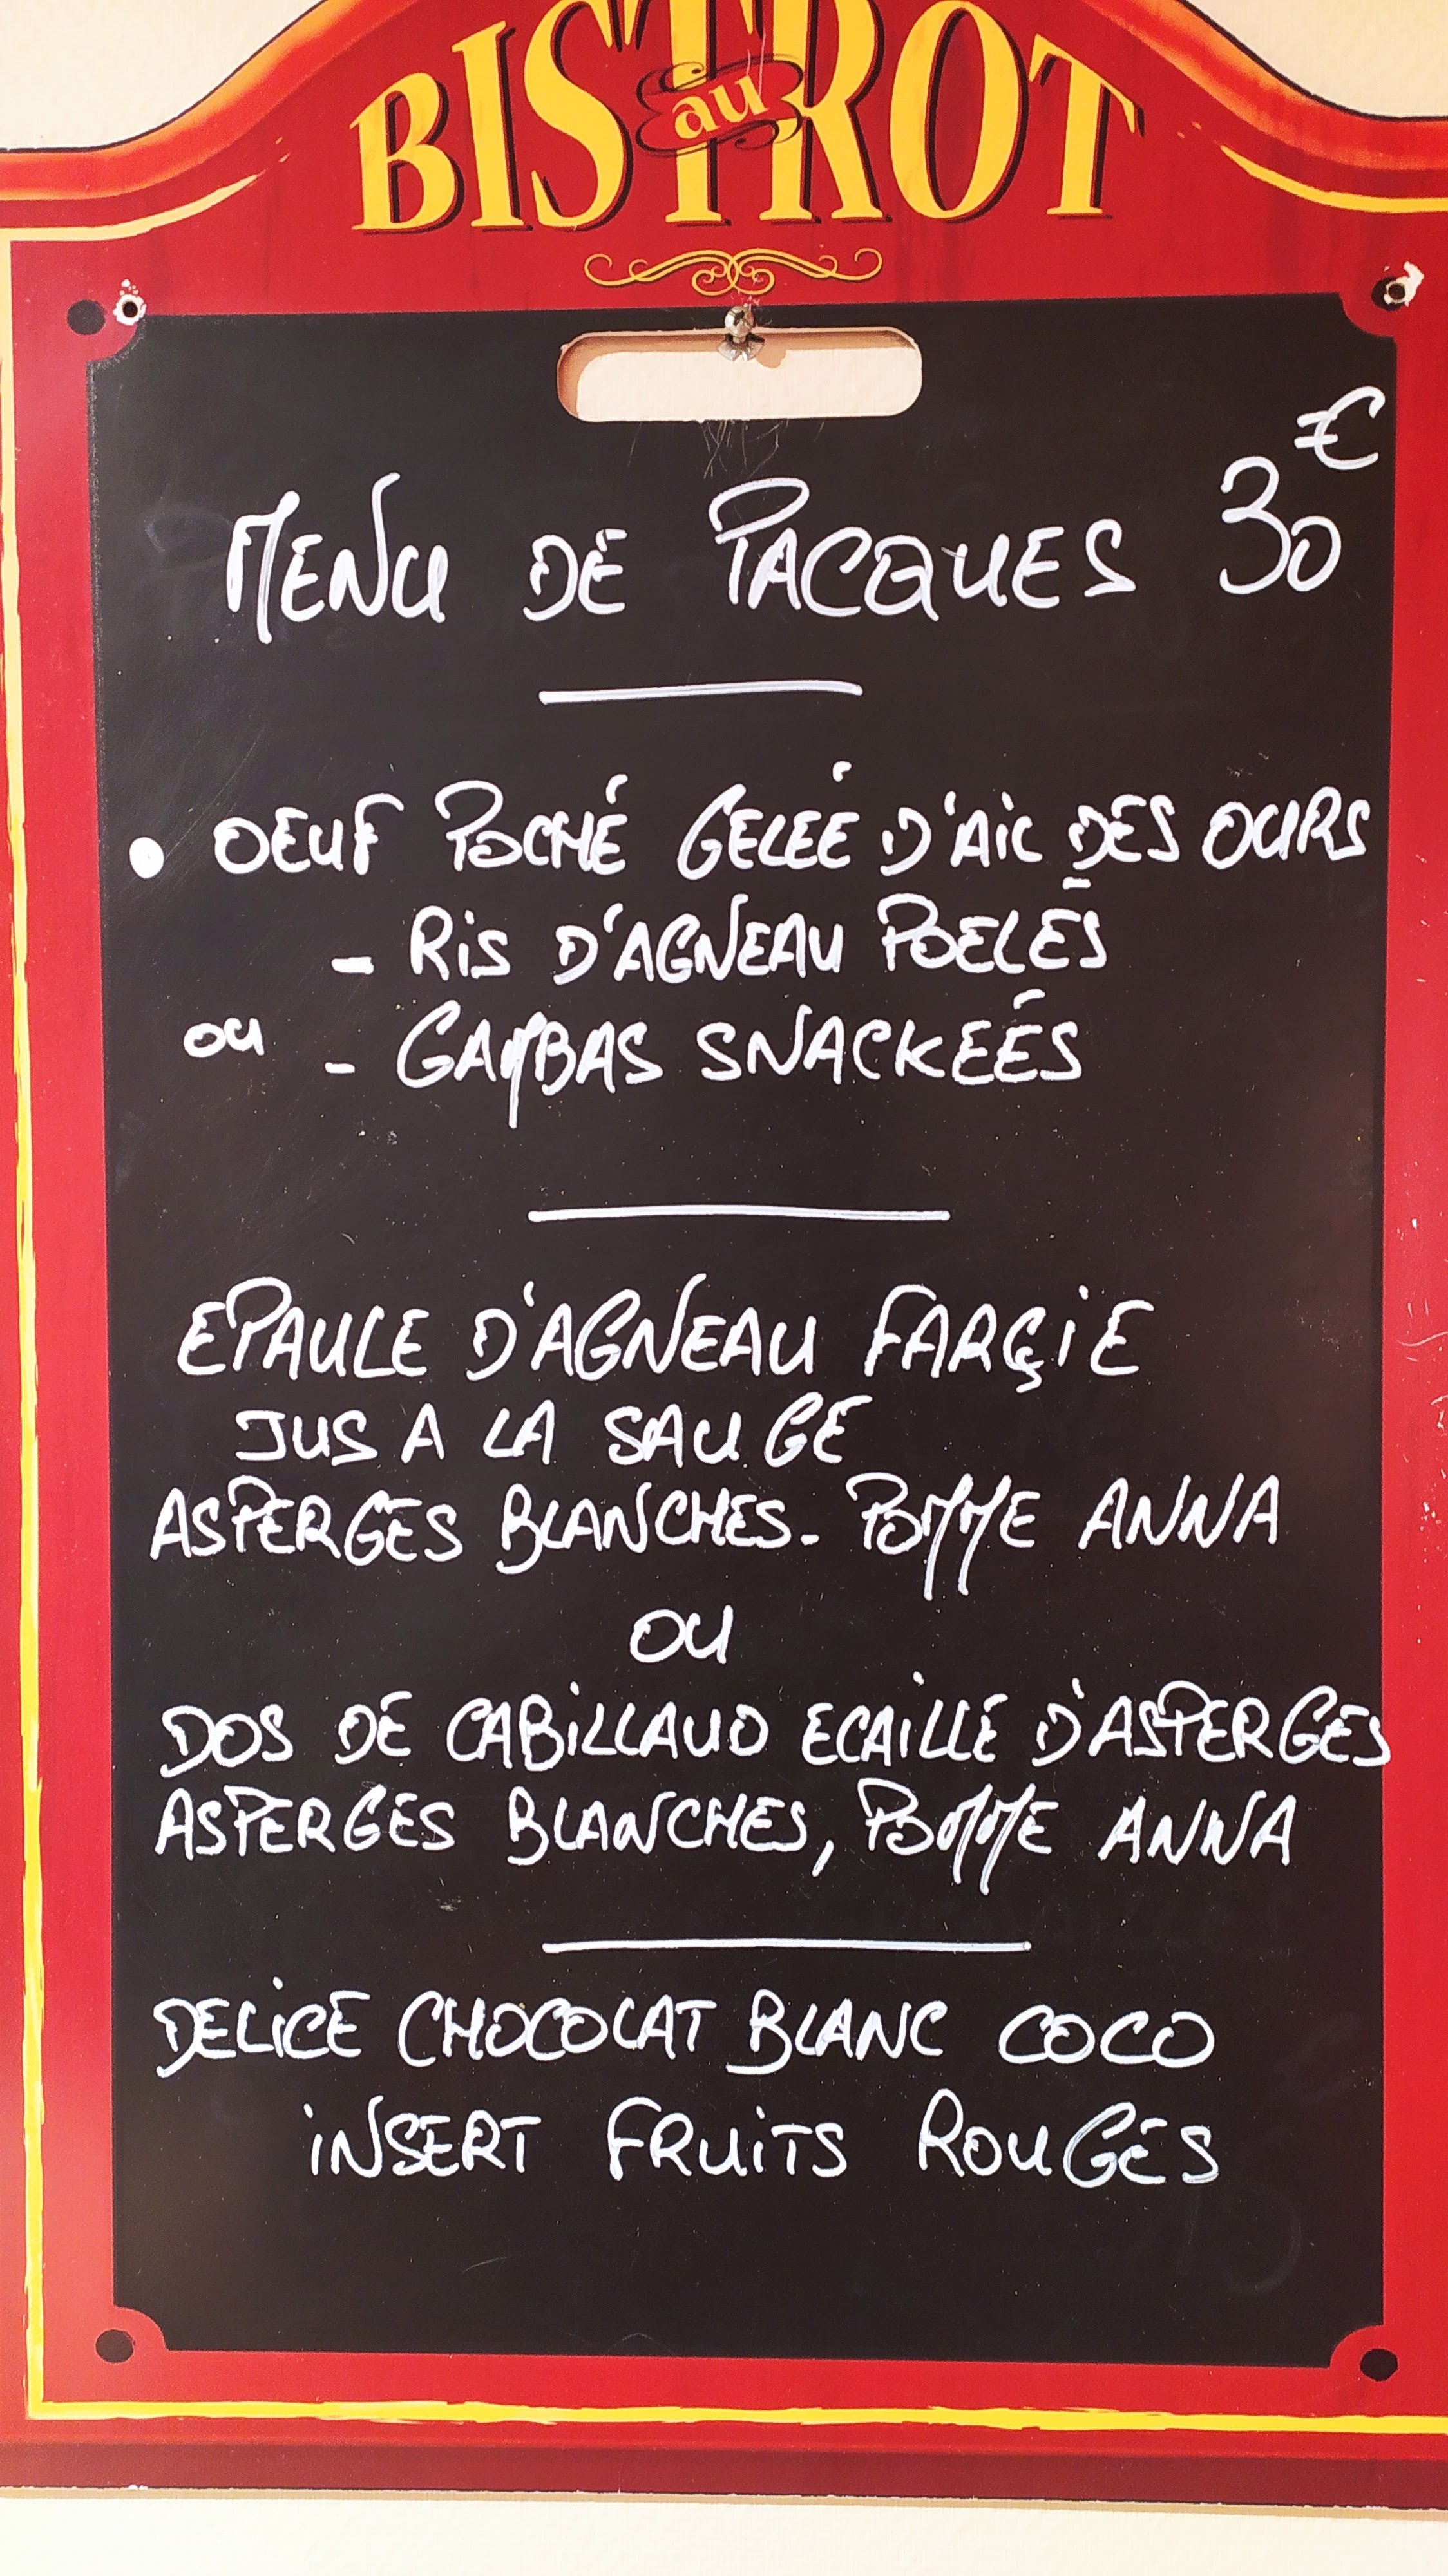 BISTROT
au
€
MENU DE PACQUES 30
• OEUF POCHÉ GELEÉ D'AIL DES OURS
- RIS D'AGNEAU POELÉS
ou - GAMBAS SNACKEÉS
EPAULE D'AGNEAU FARÇIE
JUS A LA SAUGE
ASPERGES BLANCHES - POMME ANNA
OU
DOS DE CABILLAUD ECAILLE D'ASPERGES
ASPERGES BLANCHES, POMME ANNA
DELICE CHOCOLAT BLANC COCO
INSERT FRUITS ROUGES